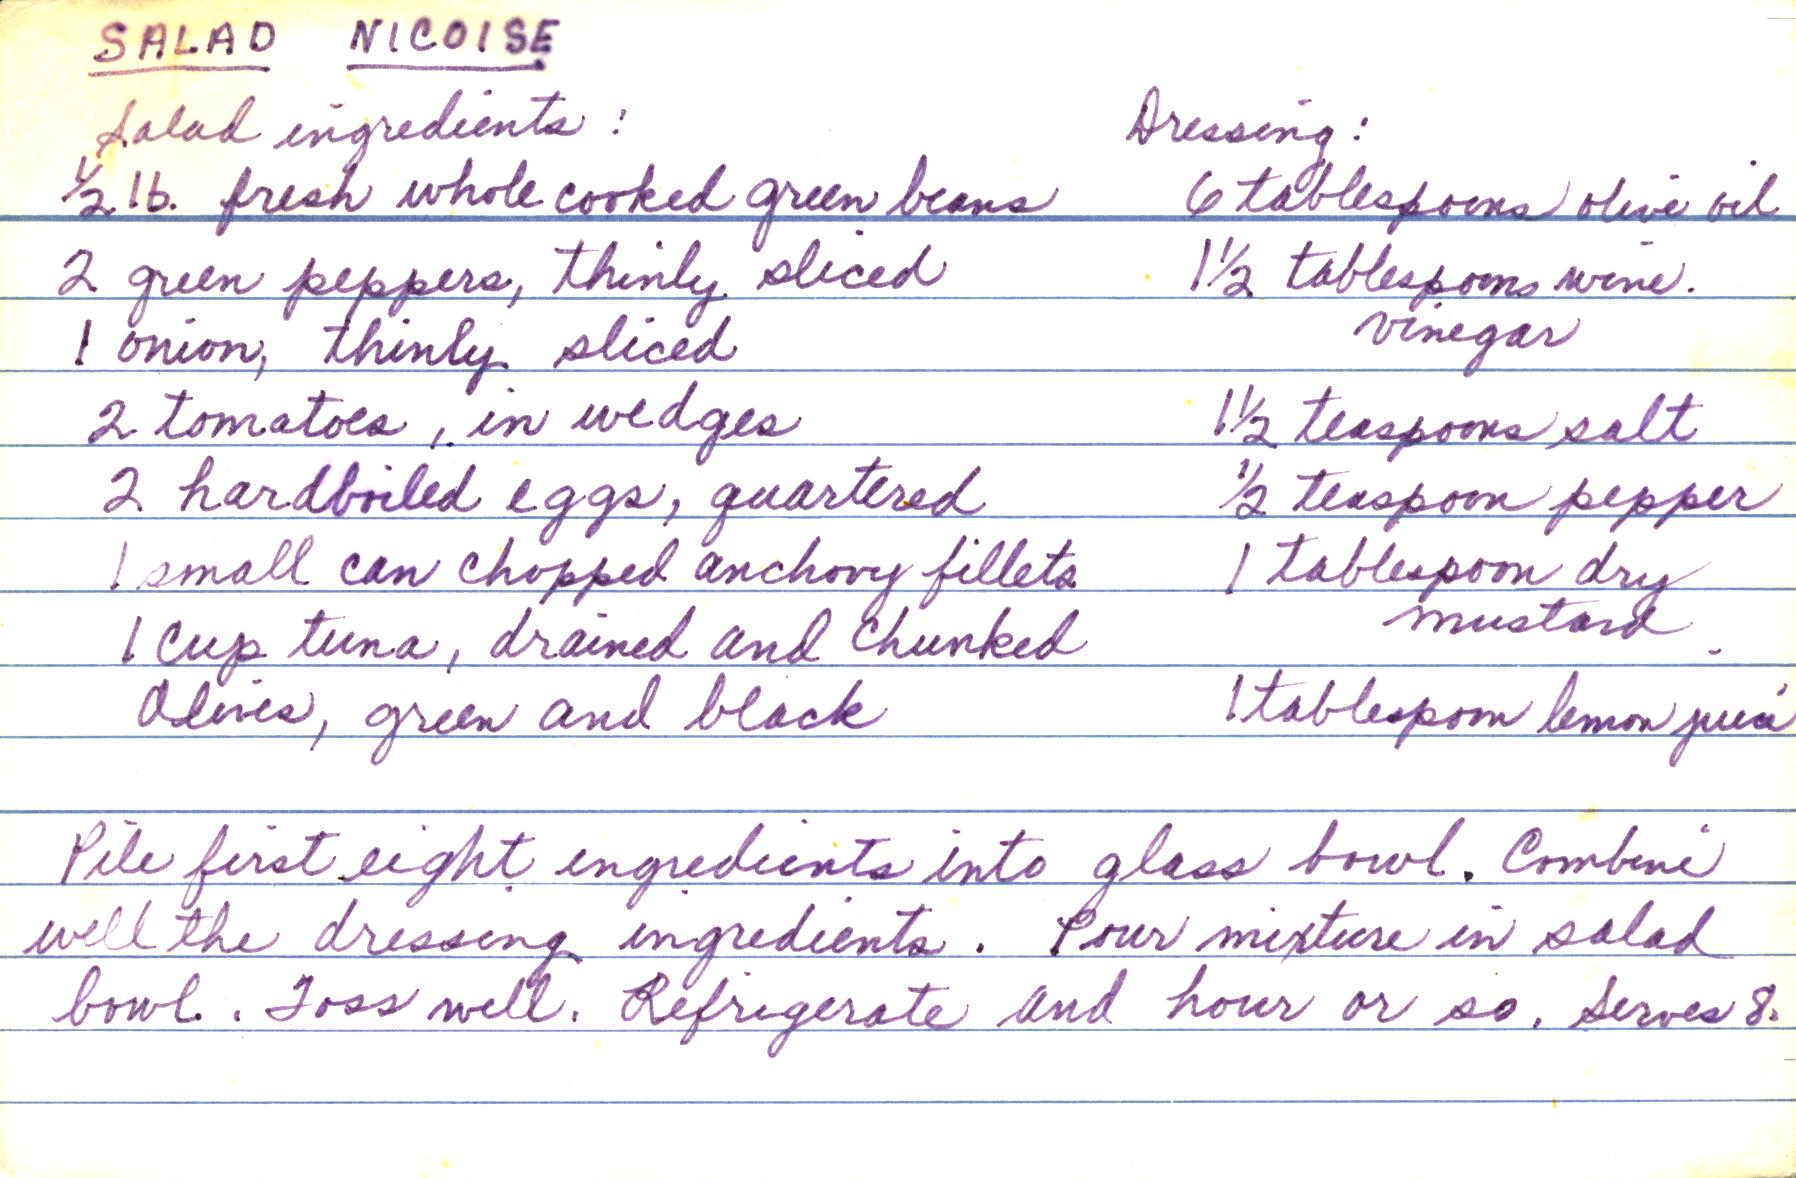 SALAD NICOISE
Salad ingredients:
½ lb. fresh whole cooked green beans
2 green peppers, thinly sliced
1 onion, thinly sliced
2 tomatoes, in wedges
2 hardboiled eggs, quartered
1 small can chopped anchovy fillets
1 cup tuna, drained and chunked
Olives, green and black
Dressing:
6 tablespoons olive oil
1½ tablespoons wine
vinegar
1½ teaspoons salt
½ teaspoon pepper
1 tablespoon dry
mustard
1 tablespoon lemon juice
Pile first eight ingredients into glass bowl. Combine
well the dressing ingredients. Pour mixture in salad
bowl. Toss well. Refrigerate and hour or so. Serves 8.